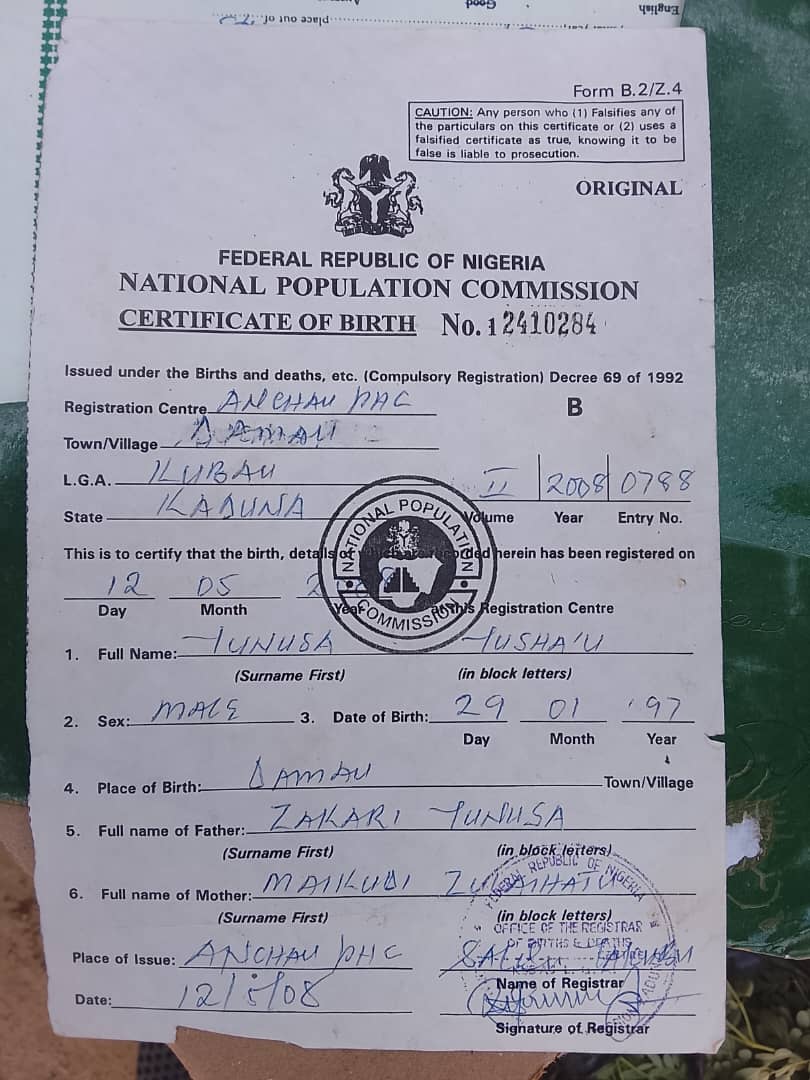 English
Good
place out of
Form B.2/Z.4
CAUTION: Any person who (1) Falsifies any of
the particulars on this certificate or (2) uses a
falsified certificate as true, knowing it to be
false is liable to prosecution.
ORIGINAL
FEDERAL REPUBLIC OF NIGERIA
NATIONAL POPULATION COMMISSION
CERTIFICATE OF BIRTH No. 12410284
Issued under the Births and deaths, etc. (Compulsory Registration) Decree 69 of 1992
Registration Centre ANCHAU PHC B
Town/Village DAMAU
L.G.A. KUBAU II 2008 0788
State KADUNA Volume Year Entry No.
NATIONAL POPULATION COMMISSION
This is to certify that the birth, details of which are recorded herein has been registered on
12 05 2008
Day Month Year at this Registration Centre
1. Full Name: YUNUSA YUSHA'U
(Surname First) (in block letters)
2. Sex: MALE 3. Date of Birth: 29 01 '97
Day Month Year
4. Place of Birth: DAMAU Town/Village
5. Full name of Father: ZAKARI YUNUSA
(Surname First) (in block letters)
6. Full name of Mother: MAIKUDI ZULAIHATU
(Surname First) (in block letters)
FEDERAL REPUBLIC OF NIGERIA
OFFICE OF THE REGISTRAR
OF BIRTHS & DEATHS
Place of Issue: ANCHAU PHC
Name of Registrar
Date: 12/5/08
Signature of Registrar